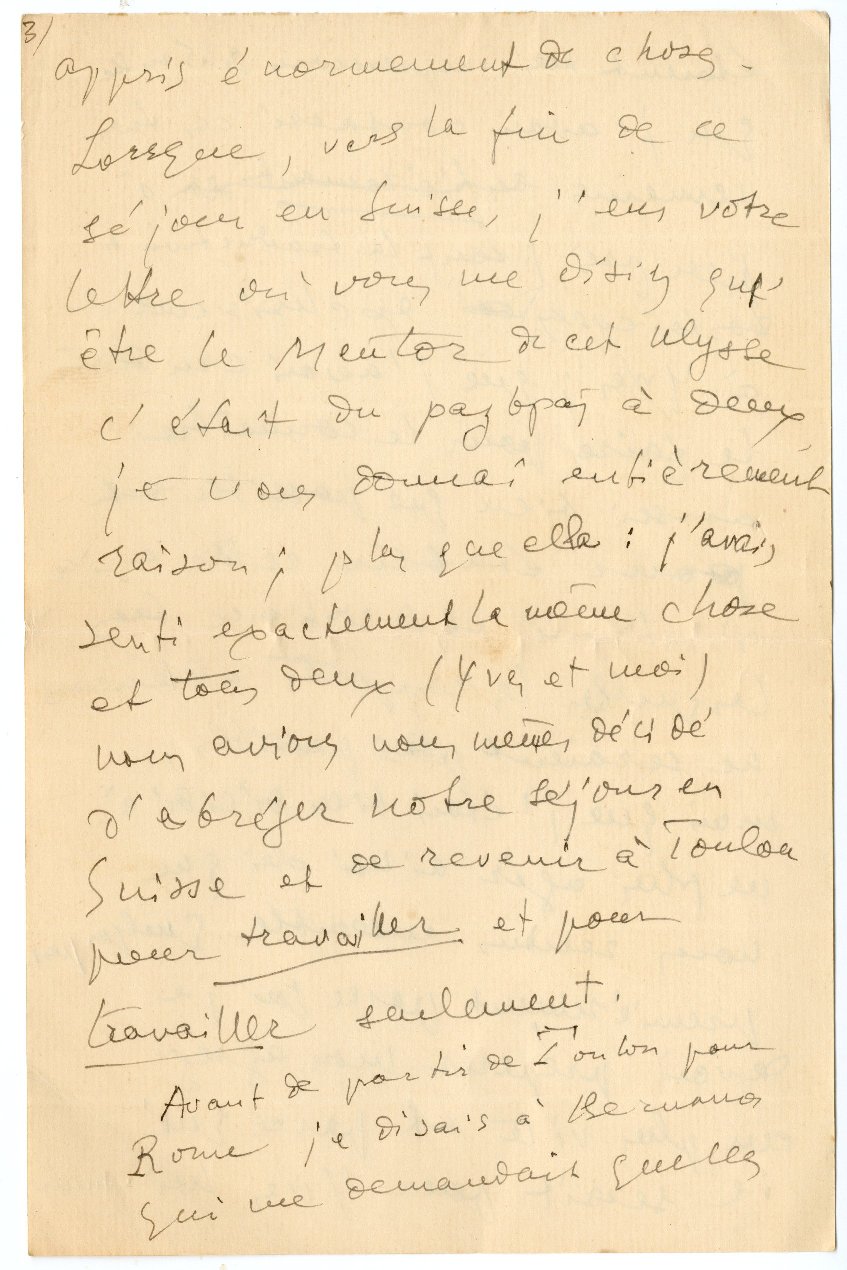 3/
appris énormement de choses.
Lorsque, vers la fin de ce
séjour en Suisse, j'eus votre
lettre où vous me disiez qu'
être le Mentor de cet Ulysse
c'était du à deux
je vous donnai entièrement
raison; plus que cela : j'avais
senti exactement la même chose
et tous deux (Yves et moi)
nous avions nous mêmes décidé
d'abréger notre séjour en
Suisse et de revenir à Toulon
pour travailler et pour
travailler seulement.
Avant de partir de Toulon pour
Rome je disais à Bernanos
qui me demandait quelles